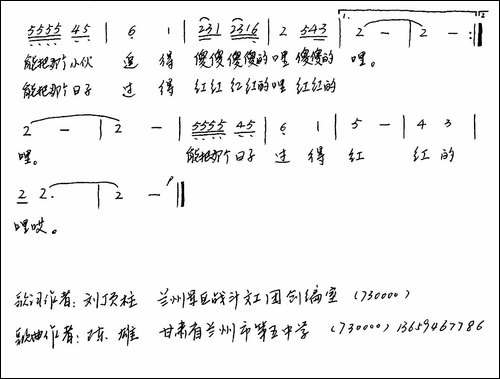 5555 45 | 6 1 | 231 2316 | 2 543 | 1. 2 — | 2 — :|| 2.
能把那个小伙 追 得 傻傻傻傻的哩 傻傻的 哩。
能把那个日子 过 得 红红 红红的哩 红红的
2 — | 2 — | 5555 45 | 6 1 | 5 — | 4 3 |
哩。 能把那个日子 过 得 红 红 的
2 2. | 2 — ||
哩哎。
歌词作者: 刘顶柱 兰州军区战斗文工团创编室 (730000)
歌曲作者: 陈 雄 甘肃省兰州市第五中学 (730000) 13659467786